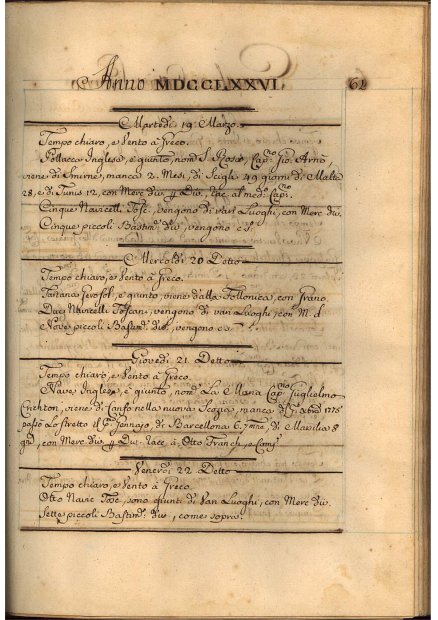 Anno MDCCLXXVI. 62
Martedì 19 Marzo.
Tempo chiaro, e Vento à Greco.
Pollacca Inglese, è giunto, nom.ᵃ S. Rocco, Cap.ⁿᵒ Gio:
viene di Smirne, manca 2. Mesi, di Scigli 49 giorni, di Malta
28, e di Tunis 12, con Merc div. Rac. al med.ᵒ Cap.ⁿᵒ
Cinque Navicelli Tosc. vengono di vari Luoghi, con Merc div.
Cinque piccoli Bastim.ᵗⁱ div. vengono c.s.
Mercoldì 20 Detto
Tempo chiaro, e Vento à Greco.
Tartana è giunto, viene dalla Follonica, con Grano.
Navicelli Toscani, vengono di vari Luoghi, con M. d
Nove piccoli Bastim.ᵗⁱ div. vengono c.s.
Giovedì 21 Detto
Tempo chiaro, e Vento à Greco.
Nave Inglese, è giunto, nom.ᵃ La Maria Cap.ⁿᵒ Guglielmo
Crichton, viene di Canso nella nuova Scozia, manca 1775
passò Lo Stretto il Gennajo, di Barcellona 6. di Marsilia 8
con Merc div. Rac. à, Otto Franch, e Comp.
Venerdì 22 Detto
Tempo chiaro, e Vento à Greco
Otto Navic Tosc, sono giunti di Vari Luoghi, con Merc div.
Sette piccoli Bastim.ᵗⁱ div, come sopra.